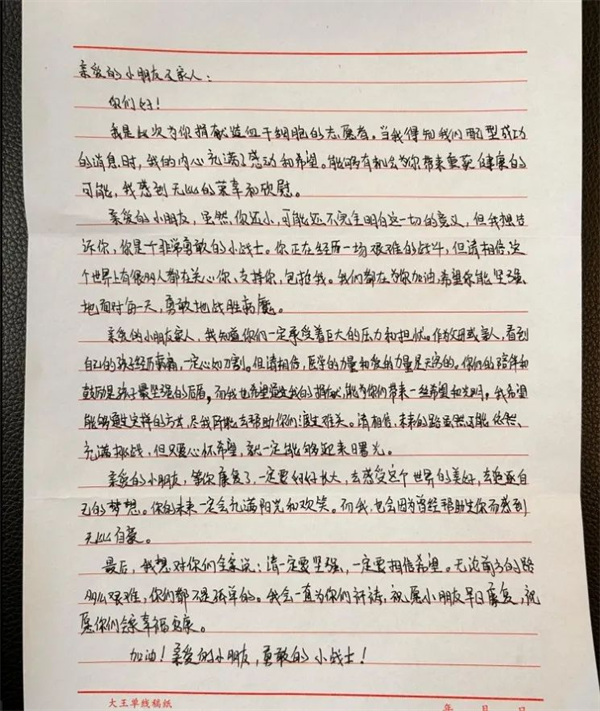 亲爱的小朋友及家人：
你们好！
我是此次为你捐献造血干细胞的志愿者。当我得知我们配型成功
的消息时，我的内心充满了感动和希望。能够有机会为你带来重获健康的
可能，我感到无比的荣幸和欣慰。
亲爱的小朋友，虽然你还小，可能还不完全明白这一切的意义，但我想告
诉你，你是个非常勇敢的小战士。你正在经历一场艰难的战斗，但请相信，这
个世界上有很多人都在关心你、支持你，包括我。我们都在为你加油，希望你能坚强
地面对每一天，勇敢地战胜病魔。
亲爱的小朋友家人，我知道你们一定承受着巨大的压力和担忧。作为父母或亲人，看到
自己的孩子经历病痛，一定心如刀割。但请相信，医学的力量和爱的力量是无穷的。你们的陪伴和
鼓励是孩子最坚强的后盾。而我也希望通过我的捐献，能为你们带来一丝希望和光明。我希望
能够通过这样的方式，尽我所能去帮助你们渡过难关。请相信，未来的路虽然可能依然
充满挑战，但只要心怀希望，就一定能够迎来曙光。
亲爱的小朋友，等你康复了，一定要好好长大，去感受这个世界的美好，去追逐自
己的梦想。你的未来一定会充满阳光和欢笑。而我，也会因为曾经帮助过你而感到
无比自豪。
最后，我想对你们全家说：请一定要坚强，一定要相信希望。无论前方的路
多么艰难，你们都不是孤单的。我会一直为你们祈祷，祝愿小朋友早日康复，祝
愿你们全家幸福安康。
加油！亲爱的小朋友，勇敢的小战士！
大王单线稿纸 年 月 日